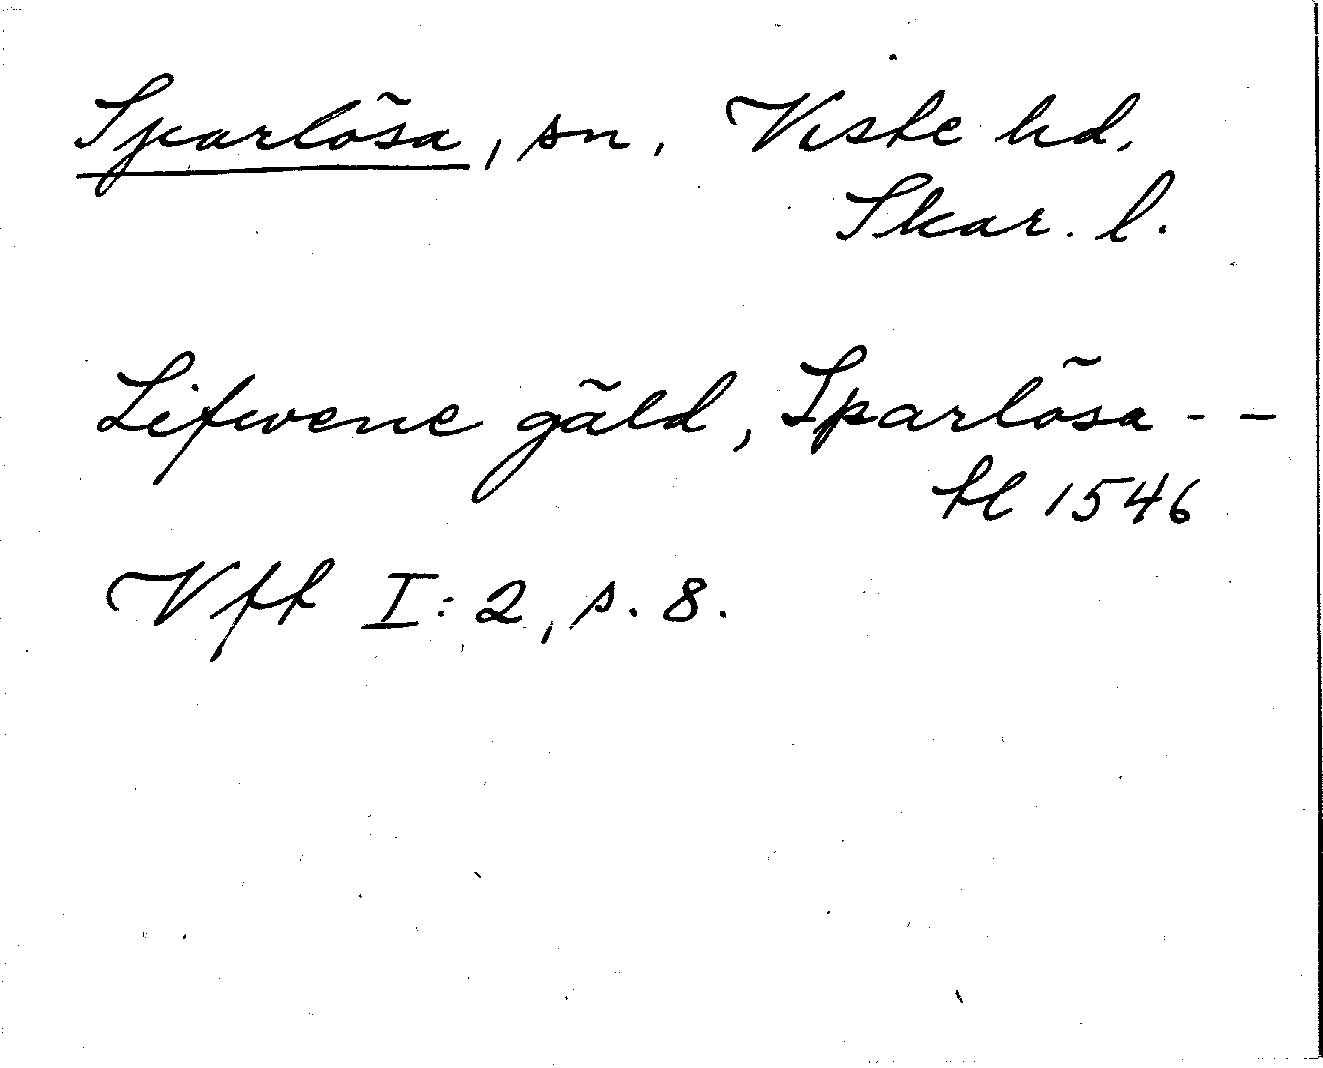 Sparlösa, sn, Viste hd,
Skar. l.
Lifwene gäld, Sparlösa - -
tl 1546
Vft I: 2, s. 8.